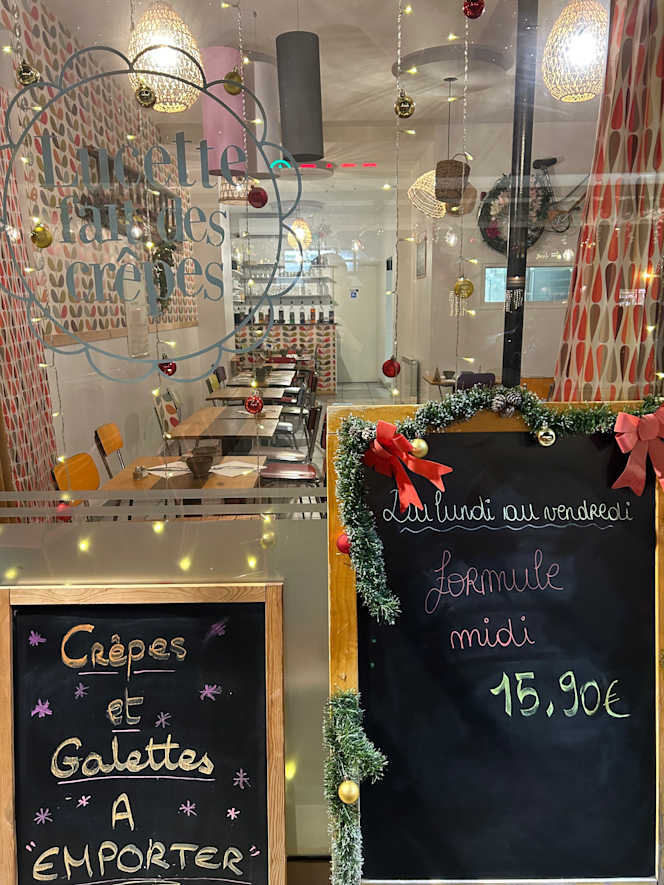 Lucette
fait des
crêpes
Du lundi au vendredi
formule
midi
15,90€
Crêpes
et
Galettes
A
"EMPORTER"